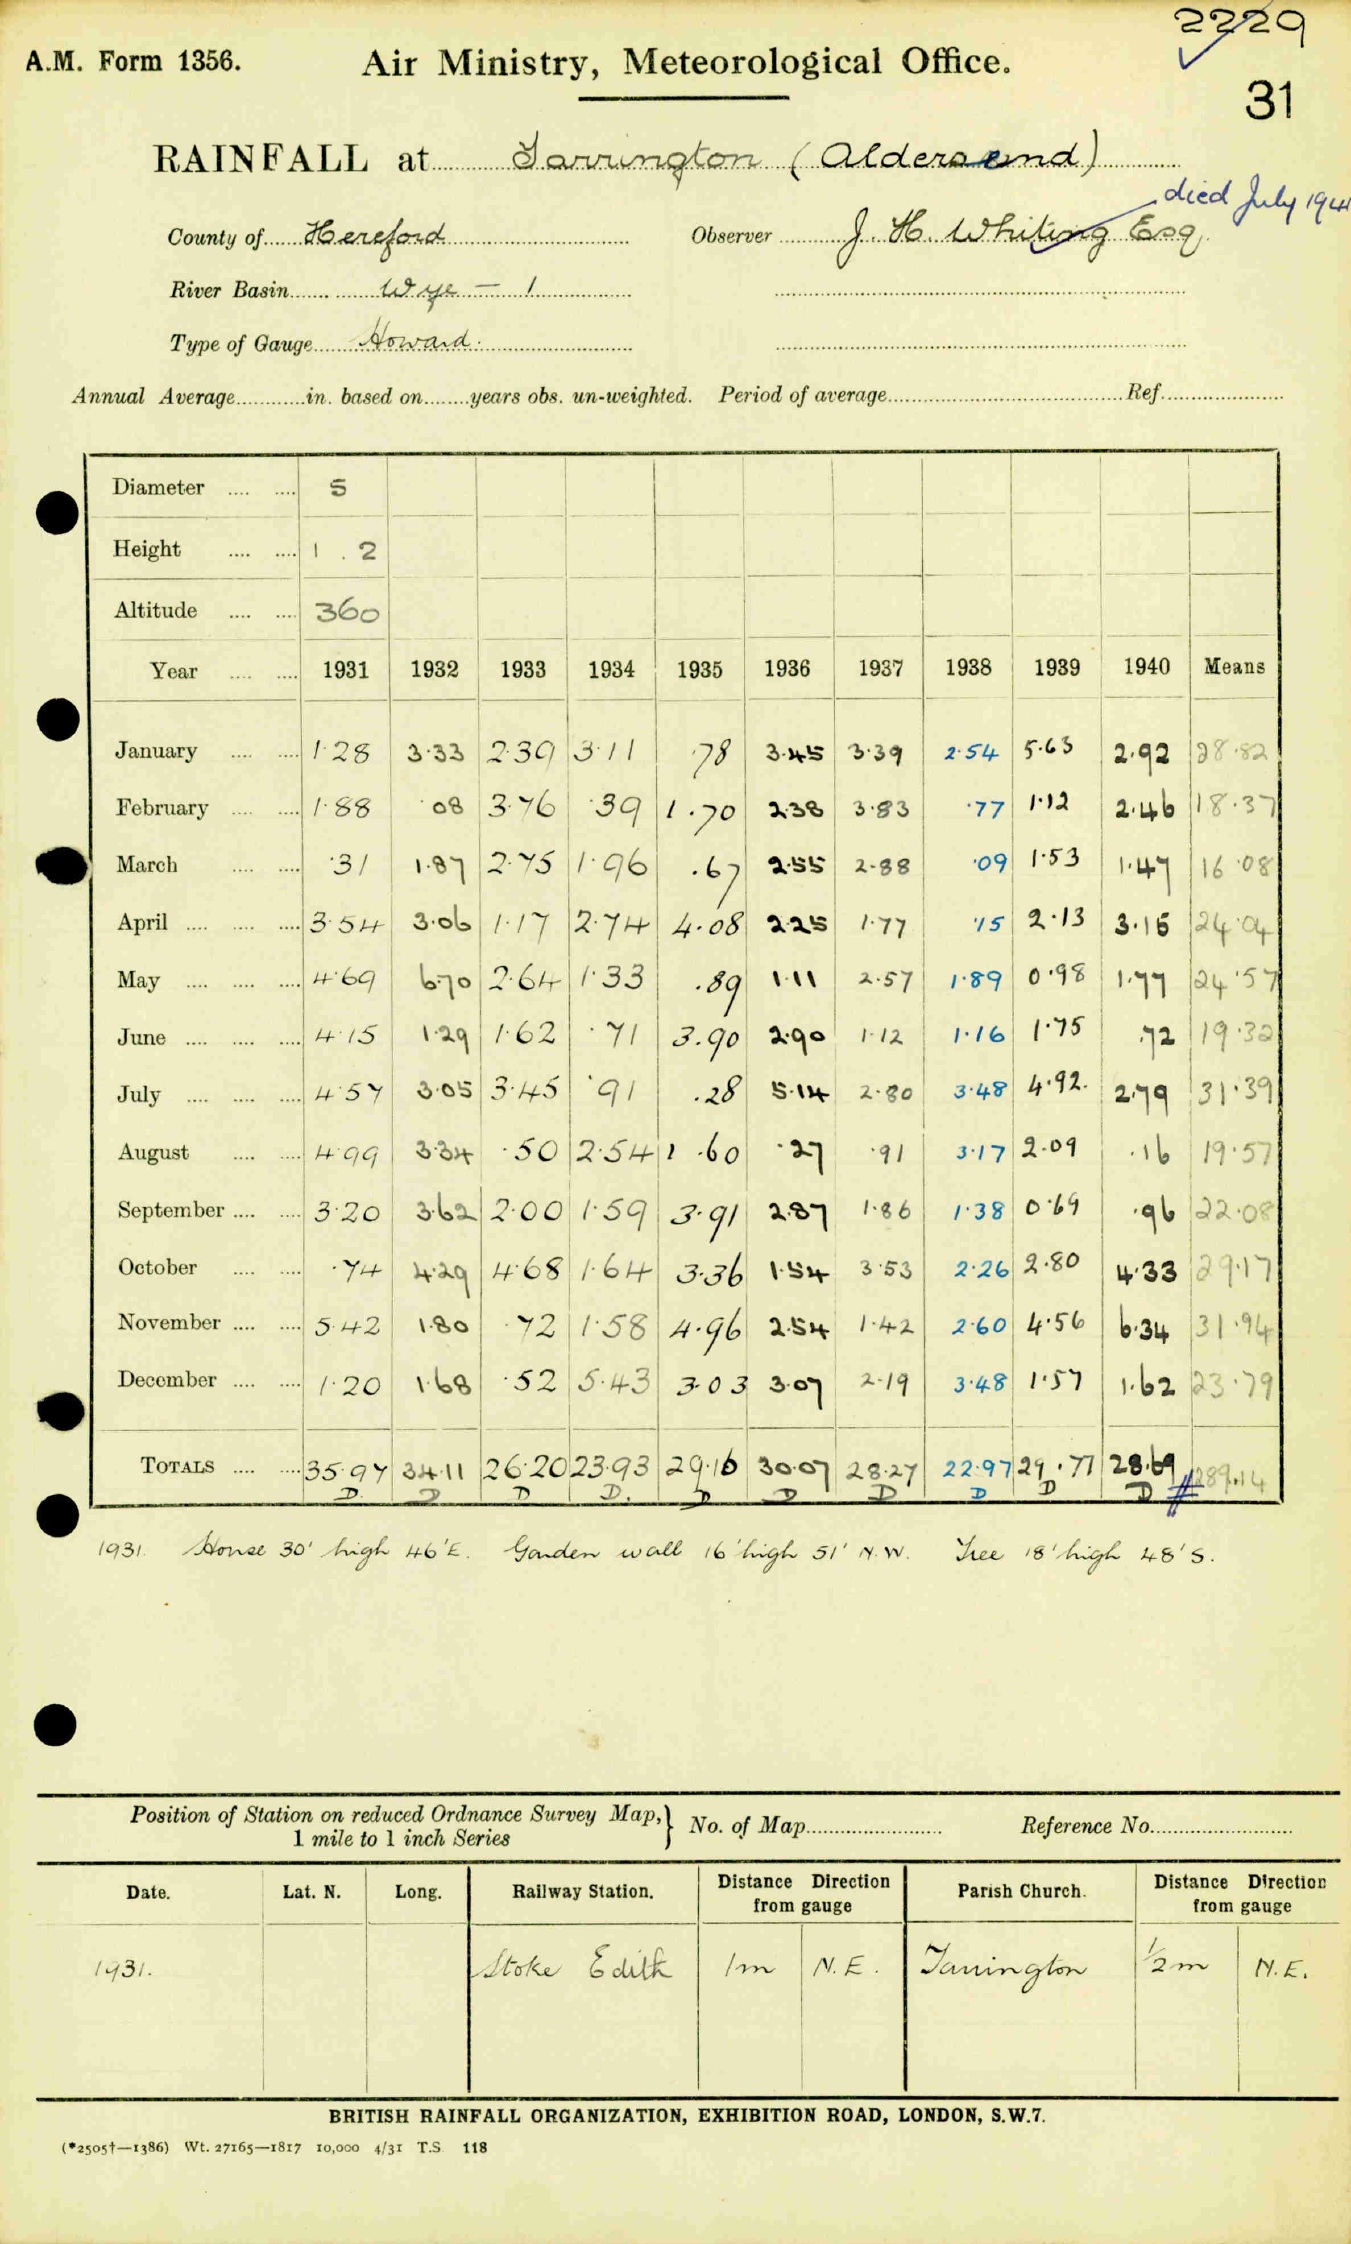 2229
A.M. Form 1356.
Air Ministry, Meteorological Office.
31
RAINFALL at Tarrington (Aldersend)
died July 1941
County of Hereford Observer J. H. Whiting Esq
River Basin Wye — 1
Type of Gauge Howard.
Annual Average in. based on years obs. un-weighted. Period of average Ref.
Diameter 5
Height 1 . 2
Altitude 360
Year 1931 1932 1933 1934 1935 1936 1937 1938 1939 1940 Means
January 1·28 3·33 2·39 3·11 ·78 3·45 3·39 2·54 5·63 2·92 28·82
February 1·88 ·08 3·76 ·39 1·70 2·38 3·83 ·77 1·12 2·46 18·37
March ·31 1·87 2·75 1·96 ·67 2·55 2·88 ·09 1·53 1·47 16·08
April 3·54 3·06 1·17 2·74 4·08 2·25 1·77 ·15 2·13 3·15 24·04
May 4·69 6·70 2·64 1·33 ·89 1·11 2·57 1·89 0·98 1·77 24·57
June 4·15 1·29 1·62 ·71 3·90 2·90 1·12 1·16 1·75 ·72 19·32
July 4·57 3·05 3·45 ·91 ·28 5·14 2·80 3·48 4·92 2·79 31·39
August 4·99 3·34 ·50 2·54 1·60 ·27 ·91 3·17 2·09 ·16 19·57
September 3·20 3·62 2·00 1·59 3·91 2·87 1·86 1·38 0·69 ·96 22·08
October ·74 4·29 4·68 1·64 3·36 1·54 3·53 2·26 2·80 4·33 29·17
November 5·42 1·80 ·72 1·58 4·96 2·54 1·42 2·60 4·56 6·34 31·94
December 1·20 1·68 ·52 5·43 3·03 3·07 2·19 3·48 1·57 1·62 23·79
TOTALS 35·97 34·11 26·20 23·93 29·16 30·07 28·27 22·97 29·77 28·69 289·14
D. D D D. D D D D D D #
1931. House 30' high 46'E. Garden wall 16' high 51' N.W. Tree 18' high 48' S.
Position of Station on reduced Ordnance Survey Map, } No. of Map Reference No.
1 mile to 1 inch Series
Date. Lat. N. Long. Railway Station. Distance Direction from gauge Parish Church. Distance Direction from gauge
1931. Stoke Edith 1m N.E. Tarrington ½m N.E.
BRITISH RAINFALL ORGANIZATION, EXHIBITION ROAD, LONDON, S.W.7.
(*2505†—1386) Wt. 27165—1817 10,000 4/31 T.S. 118